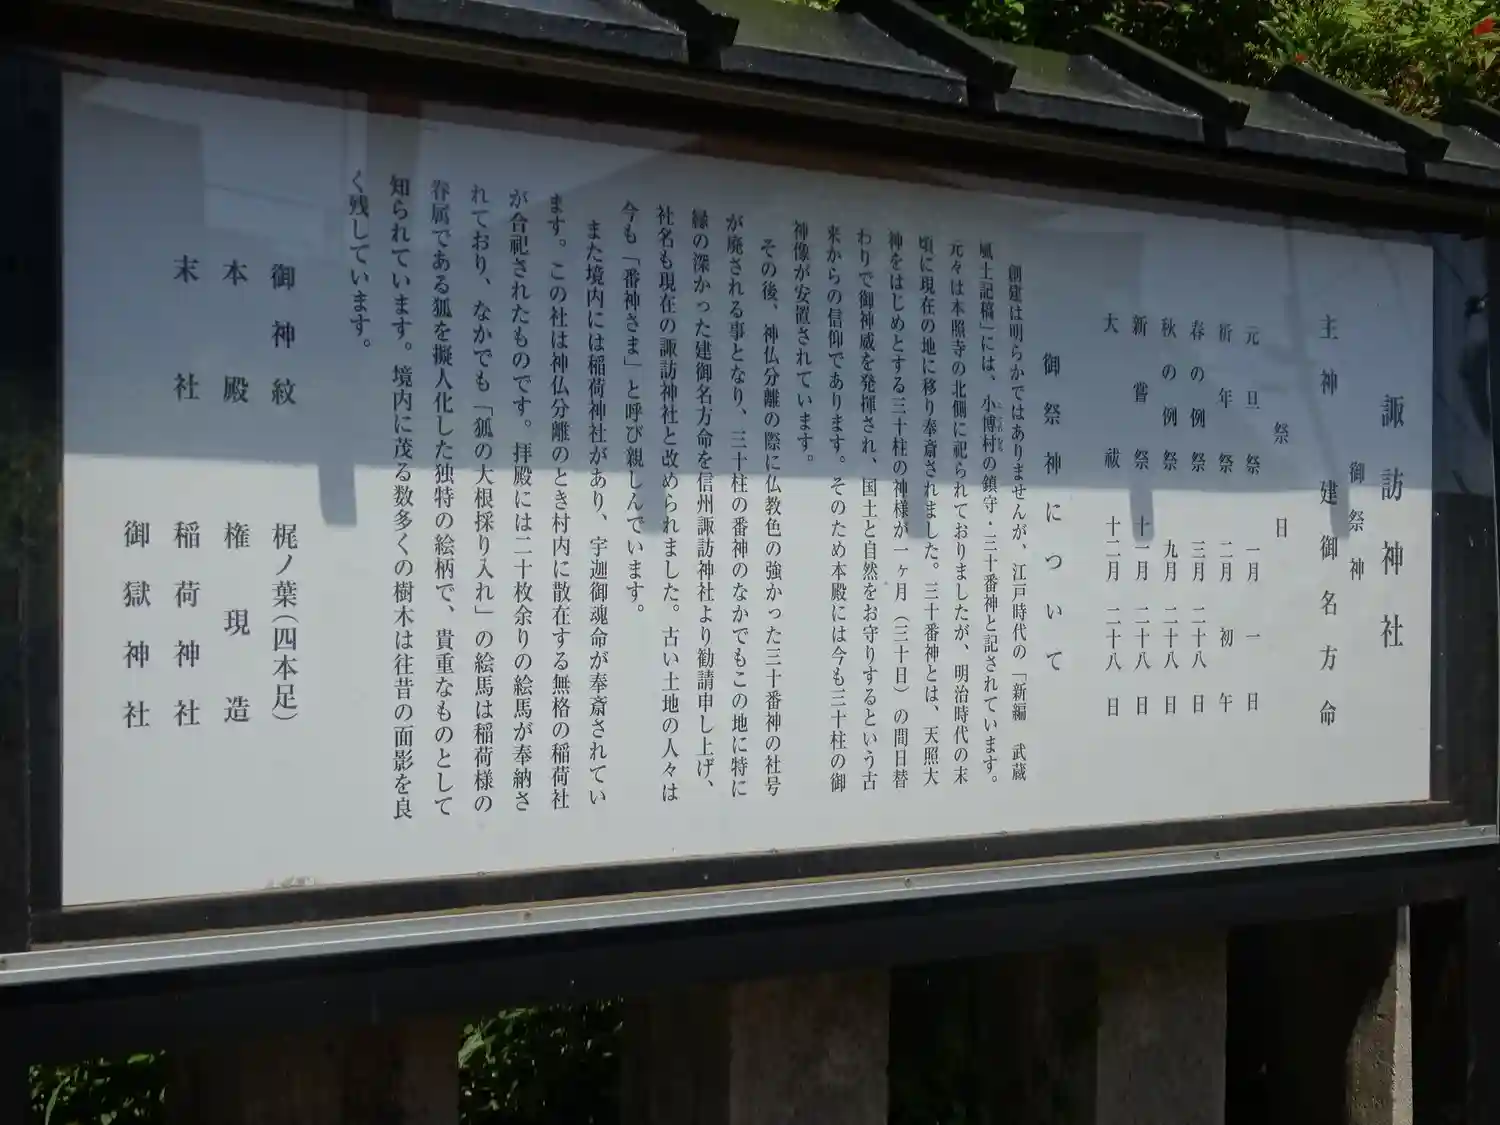 諏訪神社
御祭神
主神 建御名方命
祭日
元旦祭 一月 一日
祈年祭 二月 初午
春の例祭 三月 二十八日
秋の例祭 九月 二十八日
新嘗祭 十一月 二十八日
大祓 十二月 二十八日
御祭神について
創建は明らかではありませんが、江戸時代の「新編 武蔵
風土記稿」には、小博村の鎮守・三十番神と記されています。
元々は本照寺の北側に祀られておりましたが、明治時代の末
頃に現在の地に移り奉斎されました。三十番神とは、天照大
神をはじめとする三十柱の神様が一ヶ月（三十日）の間日替
わりで御神威を発揮され、国土と自然をお守りするという古
来からの信仰であります。そのため本殿には今も三十柱の御
神像が安置されています。
その後、神仏分離の際に仏教色の強かった三十番神の社号
が廃される事となり、三十柱の番神のなかでもこの地に特に
縁の深かった建御名方命を信州諏訪神社より勧請申し上げ、
社名も現在の諏訪神社と改められました。古い土地の人々は
今も「番神さま」と呼び親しんでいます。
また境内には稲荷神社があり、宇迦御魂命が奉斎されてい
ます。この社は神仏分離のとき村内に散在する無格の稲荷社
が合祀されたものです。拝殿には二十枚余りの絵馬が奉納さ
れており、なかでも「狐の大根採り入れ」の絵馬は稲荷様の
眷属である狐を擬人化した独特の絵柄で、貴重なものとして
知られています。境内に茂る数多くの樹木は往昔の面影を良
く残しています。
御神紋 梶ノ葉（四本足）
本殿 権現造
末社 稲荷神社
御嶽神社